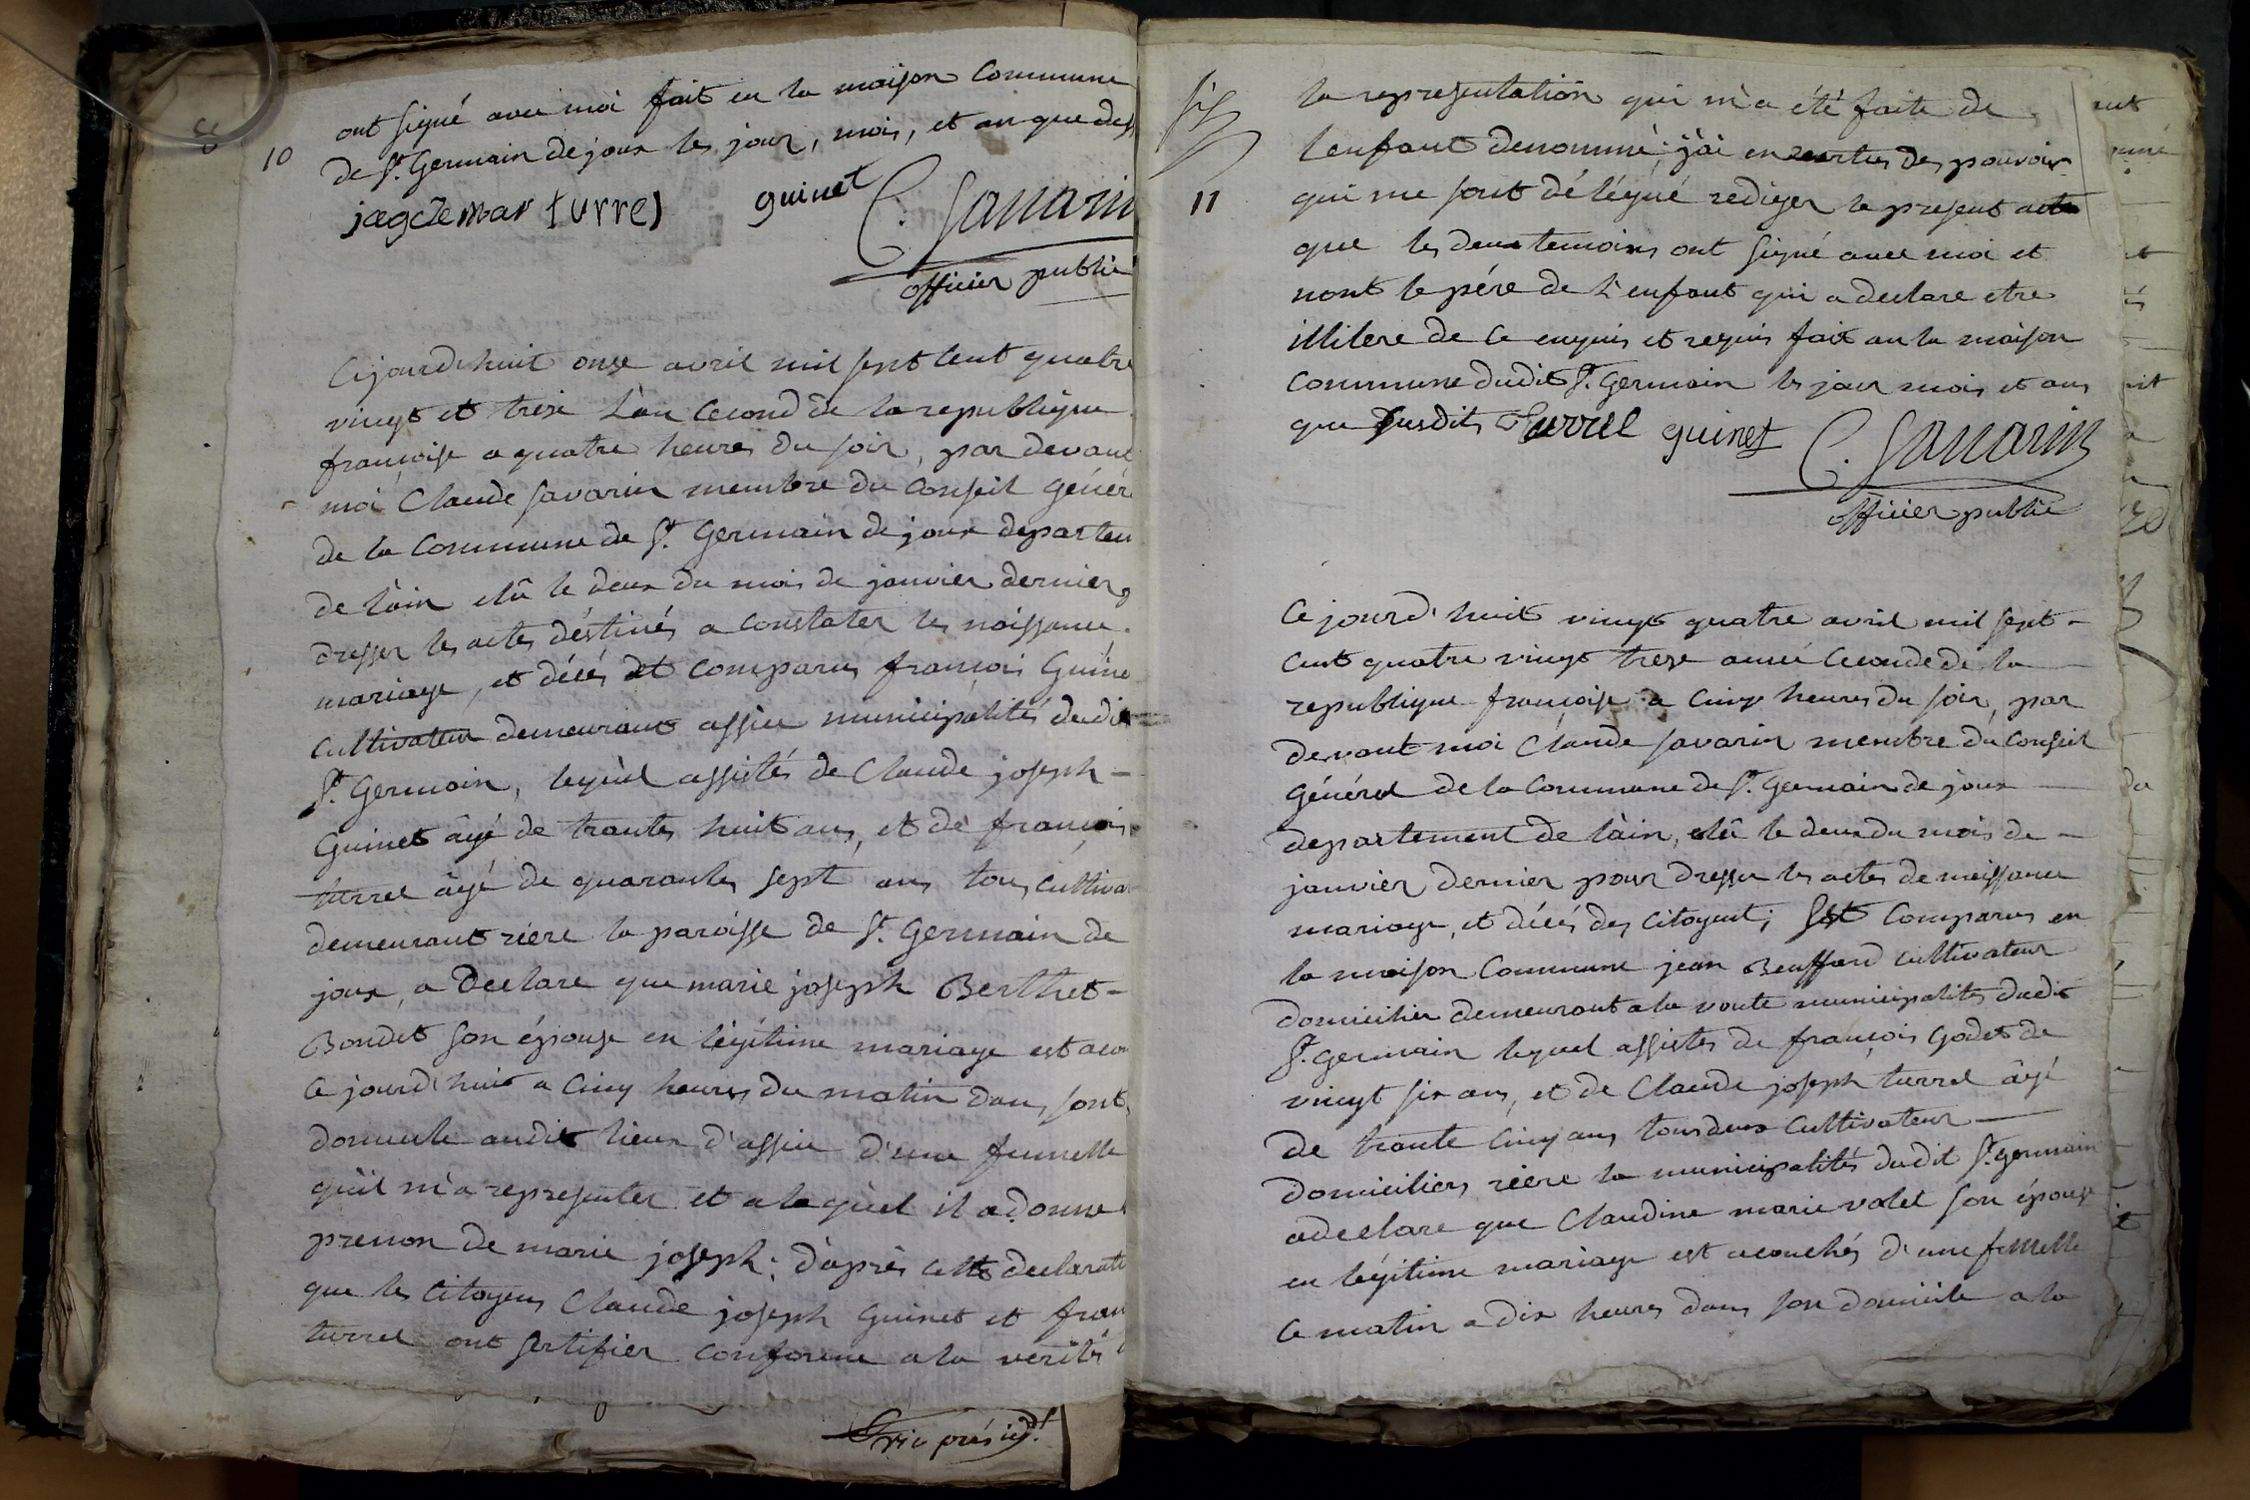 10
ont signé avec moi fait en la maison Commune
de St. Germain de joux les jour, mois, et an que des
jacquemar turrel guinet C. Savarin
officier public
Cejourd'huit onze avril mil sept cent quatre
vingt et treze L'an Cecond de la republique
françoise a quatre heures du soir, par devant
moi Claude Savarin membre du Conseil génér
de la Commune de St. Germain de joux departem
de l'ain elû le deux du mois de janvier dernier
dresser les actes déstinés a Constater les naissance
mariage, et décés et Comparus françois Guine
Cultivateur demeurant assieu municipalités dudit
St. Germain, lequel assistés de Claude joseph -
Guinet âgé de trante huit ans, et de françois
turrel âgé de quarante sept ans tous cultiva
demeurant riere la paroisse de St. Germain de
joux, a Declare que marie joseph Berthet-
Bondet son épouse en légitime mariage est acou
Ce jourd'huit a Cinq heures du matin dans sont
domicile audit lieux d'assieu d'une fumelle
qu'il m'a representer et a laquel il a donne
prenon de marie joseph; d'après cette declarati
que les Citoyens Claude joseph Guinet et fran
turrel ont sertifier Conforme a la verités
présid.t
11
la representation qui m'a été faite de
lenfant denommé; j'ai en vertus des pouvoir
qui me sont délégué rediger le present acte
que les deux temoins ont signé avec moi et
nont le père de L'enfant qui a declare etre
illitere de Ce enquis et requis fait an la maison
Commune dudit St. Germain les jour mois et ans
que Susdits turrel guinet C. Savarin
officier public
Ce jourd'huit vingt quatre avril mil sept -
Cent quatre vingt treze année Ceconde de la
republique françoise a Cinq heures du soir, par
devant moi Claude Savarin membre du Conseil
Général de la Commune de St. Germain de joux
departement de l'ain, elû le deux du mois de -
janvier dernier pour dresser les actes de naissance
mariage, et décés des Citoyent; Est Comparus en
la maison Commune jean Beaffard cultivateur
domicilier demeurant a la voute municipalités dudit
St. Germain lequel assistes de françois Godet de
vingt six ans, et de Claude joseph turrel âgé
de trante Cinq ans tous deux Cultivateur
domicilies riere la municipalités dudit St. germain
a declare que Claudine marie valet son épouse
en légitime mariage est acouchés d'une femelle
Ce matin a dix heures dans son domicile a la